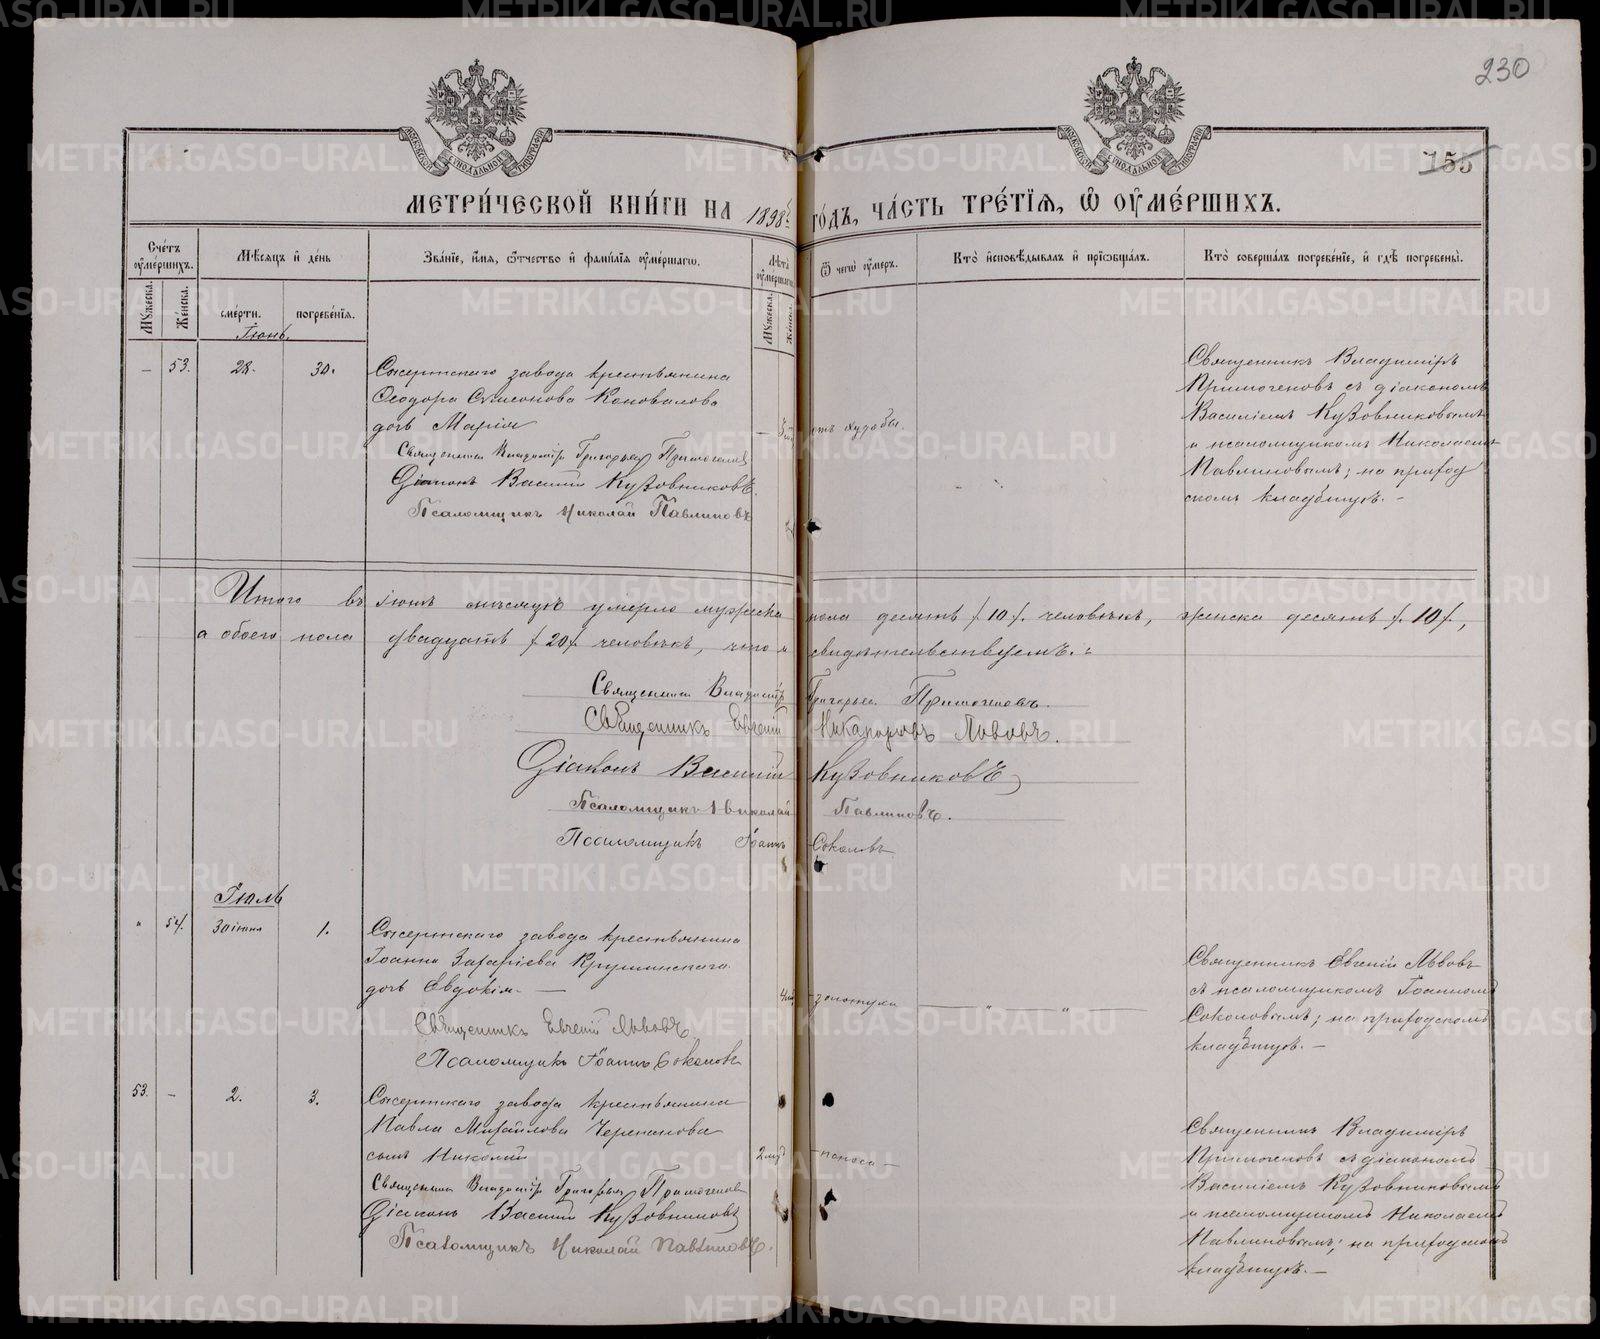 230
155
МОСКОВСКОЙ СѴНОДАЛЬНОЙ ТИПОГРАФІИ
МОСКОВСКОЙ СѴНОДАЛЬНОЙ ТИПОГРАФІИ
МЕТРИ́ЧЕСКОЙ КНИ́ГИ НА 1898 ГО́ДЪ, ЧА́СТЬ ТРЕ́ТЇѦ, Ѡ҆ ОУ҆МЕ́РШИХЪ.
Сче́тъ оу҆ме́ршихъ.
Мѣ́сяцъ и҆ де́нь
Зва́нїе, и҆́мѧ, ѻ҆́тчество и҆ фами́лїѧ оу҆ме́ршагѡ.
Лѣ́та оу҆ме́ршагѡ.
Ѿ чегѡ̀ оу҆́меръ.
Кто̀ и҆сповѣ́дывалъ и҆ прїѡбща́лъ.
Кто̀ соверша́лъ погребе́нїе, и҆ гдѣ̀ погребены̀.
Мꙋ́жеска.
Же́нска.
сме́рти.
погребе́нїѧ.
Мꙋ́жеска.
Же́нска.
Іюнь.
— 53. 28. 30.
Сысертскаго завода крестьянина
Ѳеодора Симеонова Коновалова
дочь Марія
отъ худобы.
Священникъ Владиміръ Григорьевъ Примогеновъ
Діаконъ Василій Кузовниковъ.
Псаломщикъ Николай Павлиновъ
Священникъ Владиміръ
Примогеновъ съ діакономъ
Василіемъ Кузовниковымъ
и псаломщикомъ Николаемъ
Павлиновымъ; на приход
скомъ кладбищѣ. —
Итого въ іюнѣ мѣсяцѣ умерло мужска пола десять /. 10 /. человѣкъ, женска десять /. 10 /.,
а обоего пола двадцать /. 20 /. человѣкъ, что и свидѣтельствуемъ. :
Священникъ Владиміръ Григорьевъ Примогеновъ.
Священникъ Евгеній Никаноровъ Львовъ.
Діаконъ Василій Кузовниковъ
Псаломщикъ Николай Павлиновъ.
Псаломщикъ Іоаннъ Соколовъ
Іюль
" 54. 30 іюня 1.
Сысертскаго завода крестьянина
Іоанна Захаріева Крушинскаго
дочь Евдокія. —
4 золотуха — " " —
Священникъ Евгеній Львовъ
Псаломщикъ Іоаннъ Соколовъ
Священникъ Евгеній Львовъ
съ псаломщикомъ Іоанномъ
Соколовымъ; на приходскомъ
кладбищѣ. —
53. — 2. 3.
Сысертскаго завода крестьянина
Павла Михайлова Черепанова
сынъ Николай
2 поноса —
Священникъ Владиміръ Григорьевъ Примогеновъ
Діаконъ Василій Кузовниковъ
Псаломщикъ Николай Павлиновъ.
Священникъ Владиміръ
Примогеновъ съ діакономъ
Василіемъ Кузовниковымъ
и псаломщикомъ Николаемъ
Павлиновымъ; на приходскомъ
кладбищѣ. —
METRIKI.GASO-URAL.RU